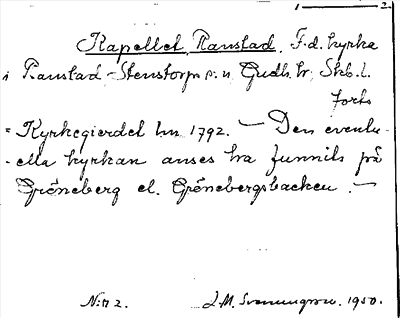 1 — 2
Kapellet, Ranstad, F.d. kyrka
i Ranstad-Stenstorps s:n Gudh. hr, Skb. l.
forts
= Kyrkegierdet hn 1792. — Den eventu-
ella kyrkan anses ha funnits på
Gröneberg el. Grönebergsbacken. —
N:r 2. J.M. Svennungsson. 1950.